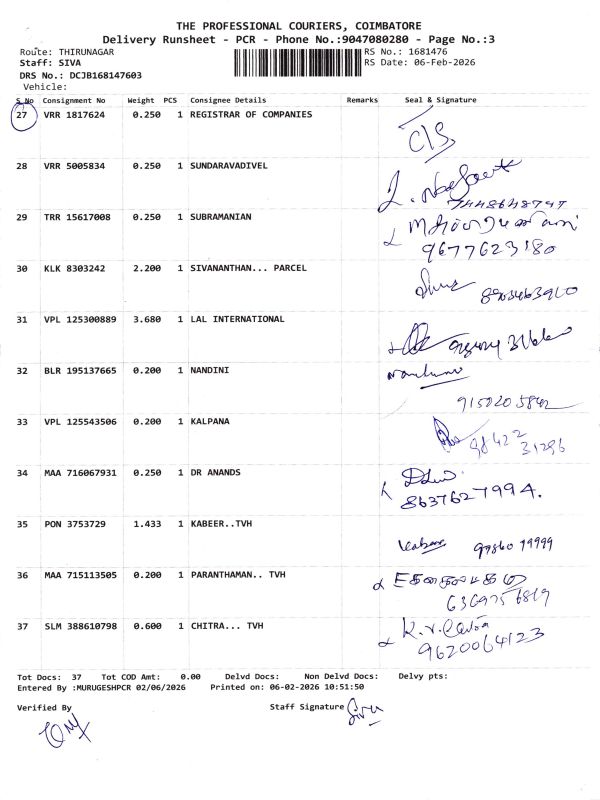 THE PROFESSIONAL COURIERS, COIMBATORE
Delivery Runsheet - PCR - Phone No.:9047080280 - Page No.:3
Route: THIRUNAGAR RS No.: 1681476
Staff: SIVA RS Date: 06-Feb-2026
DRS No.: DCJB168147603
Vehicle:
S No Consignment No Weight PCS Consignee Details Remarks Seal & Signature
27 VRR 1817624 0.250 1 REGISTRAR OF COMPANIES
C/S
28 VRR 5005834 0.250 1 SUNDARAVADIVEL
29 TRR 15617008 0.250 1 SUBRAMANIAN
9677623180
30 KLK 8303242 2.200 1 SIVANANTHAN... PARCEL
31 VPL 125300889 3.680 1 LAL INTERNATIONAL
32 BLR 195137665 0.200 1 NANDINI
9150205842
33 VPL 125543506 0.200 1 KALPANA
98422
31286
34 MAA 716067931 0.250 1 DR ANANDS
8637627994.
35 PON 3753729 1.433 1 KABEER..TVH
36 MAA 715113505 0.200 1 PARANTHAMAN.. TVH
6369756819
37 SLM 388610798 0.600 1 CHITRA... TVH
9620064123
Tot Docs: 37 Tot COD Amt: 0.00 Delvd Docs: Non Delvd Docs: Delvy pts:
Entered By :MURUGESHPCR 02/06/2026 Printed on: 06-02-2026 10:51:50
Verified By Staff Signature Siva